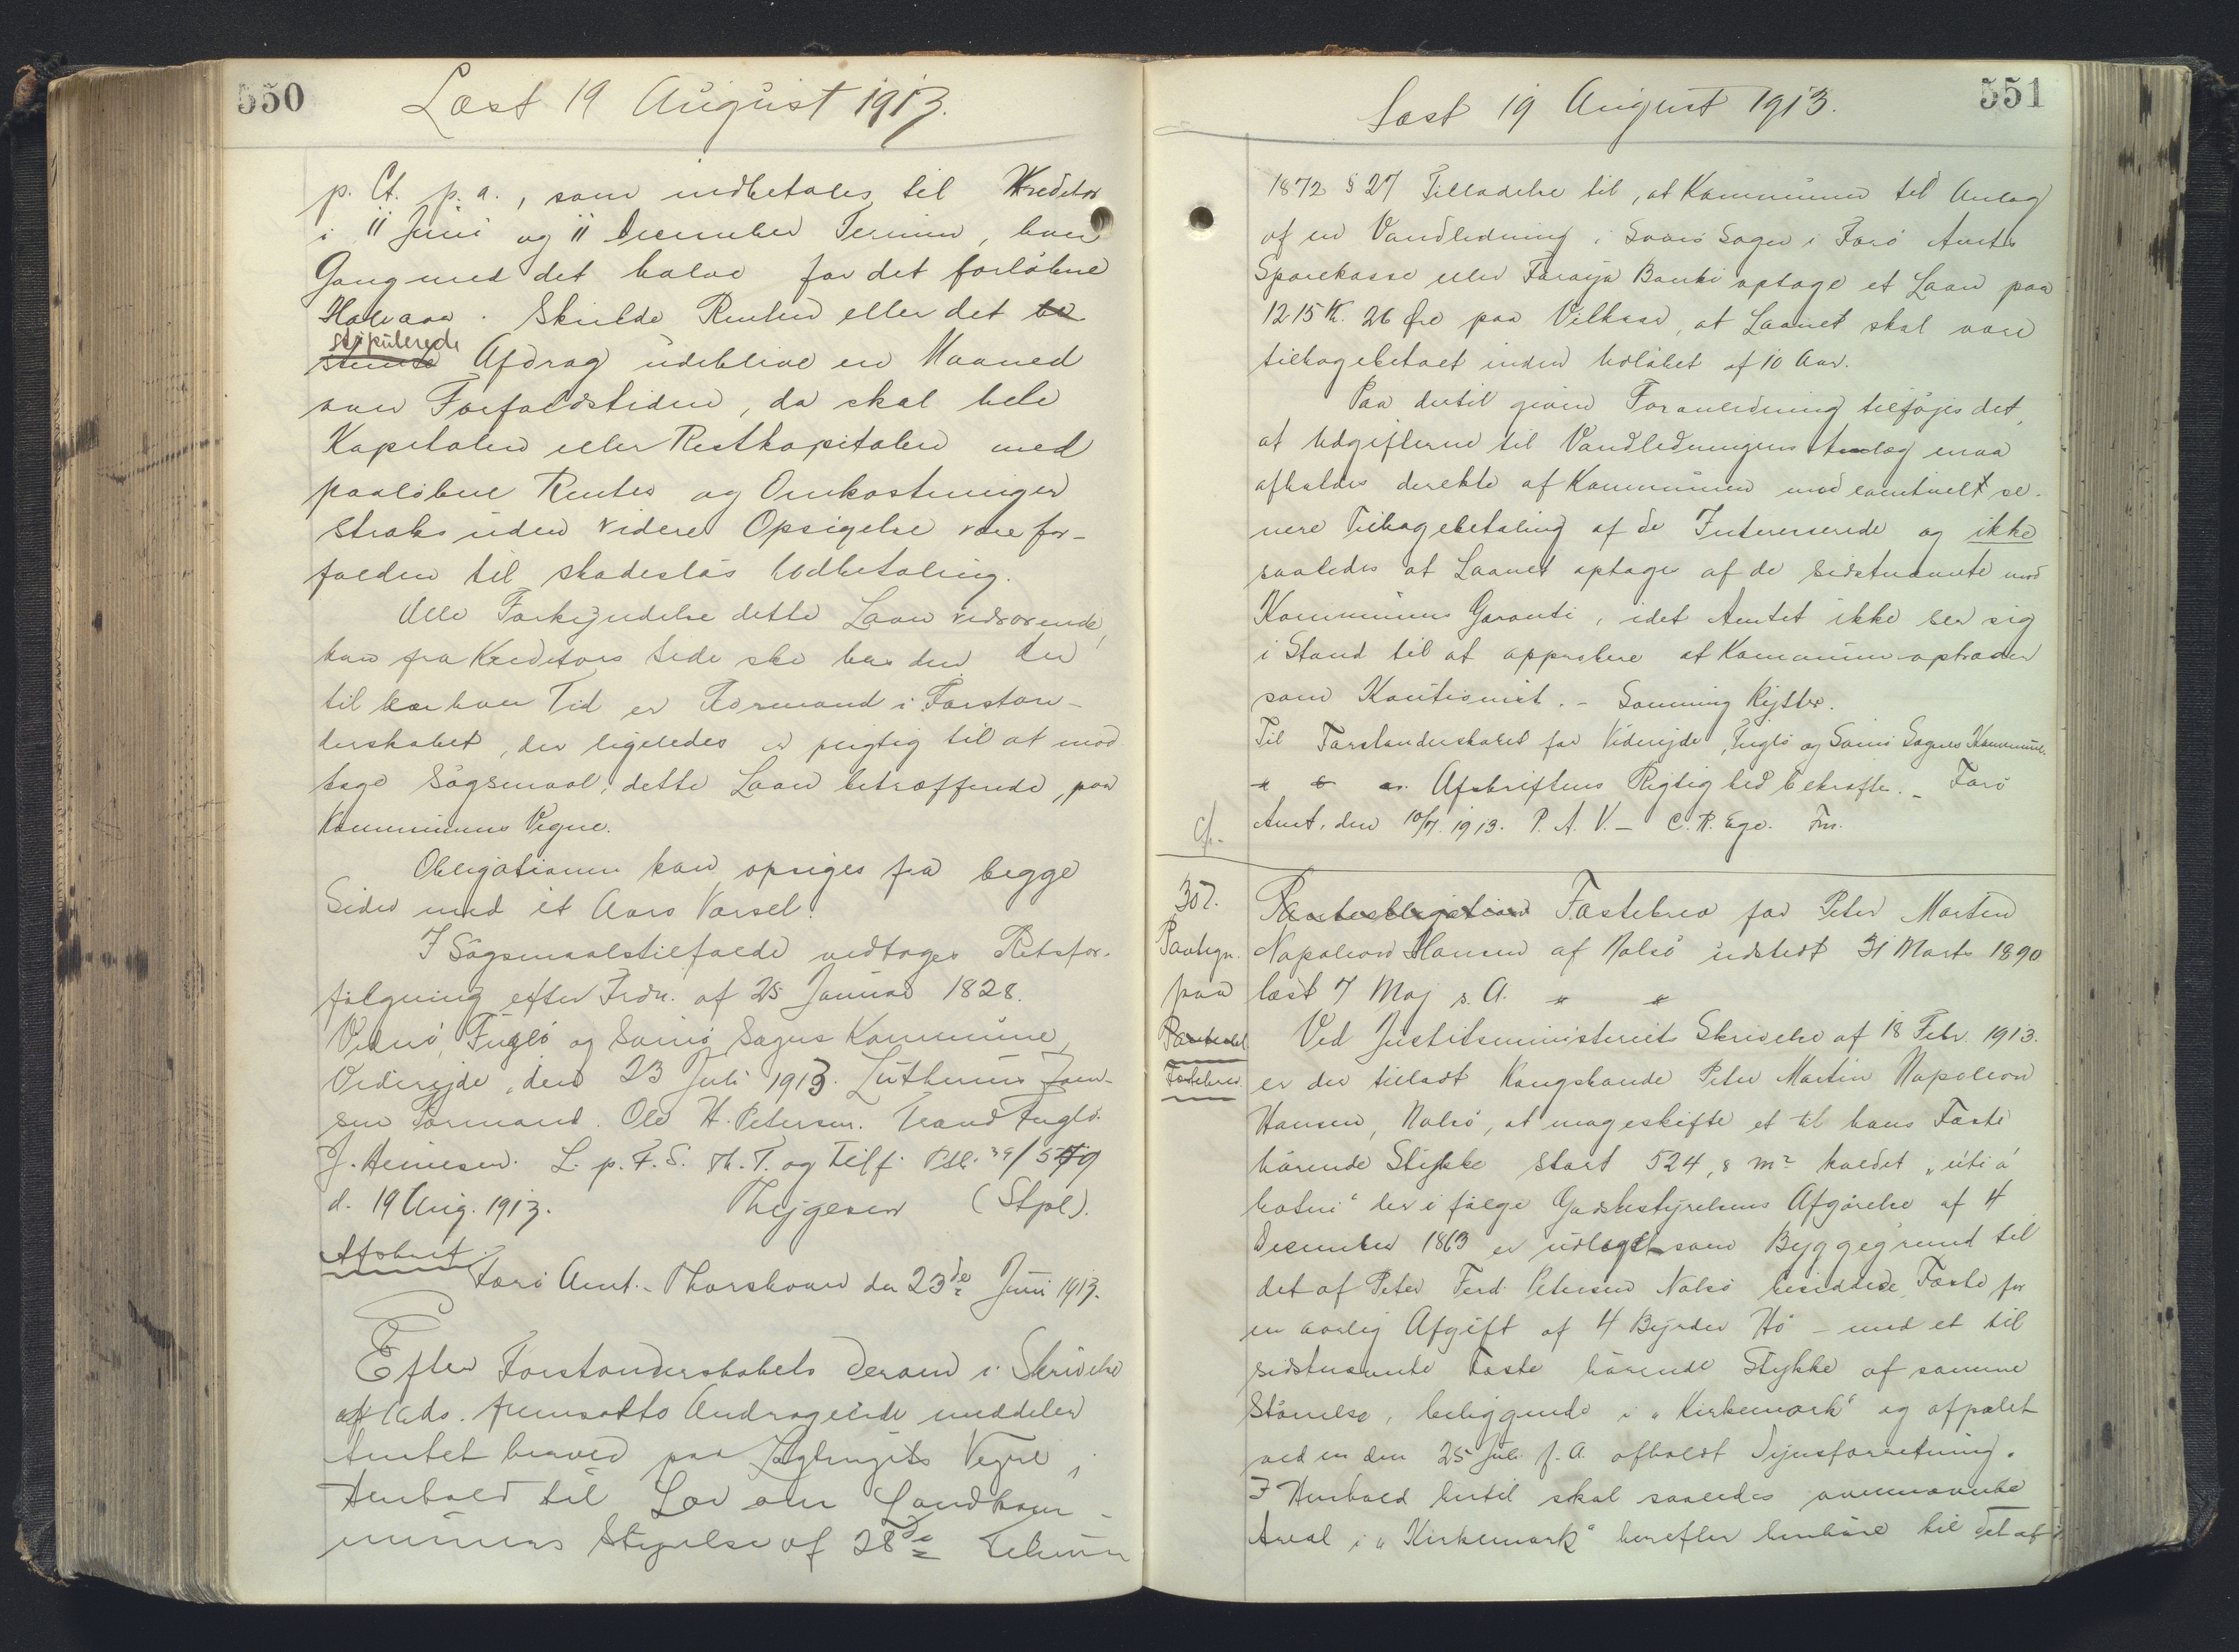 550
Læst 19 August 1913.
p. Ct. p. a., som indbetales til Kreditor
i 11 Juni og 11 December Termin, hver
Gang med det halve for det forløbne
Halvaar. Skulde Renten eller det be
stipulerede
stemte Afdrag udeblive en Maaned
over Forfaldstiden, da skal hele
Kapitalen eller Restkapitalen med
paaløbne Renter og Omkostninger
straks uden videre Opsigelse være for-
falden til skadesløs Udbetaling.
Alle Forkyndelse dette Laan vedrørende,
kan fra Kreditors Side ske hos den der
til hver Tid er Formand i Forstan-
derskabet, der ligeledes er pligtig til at mod
tage Søgsmaal, dette Laan betræffende, paa
Kommunens Vegne.
Obligationen kan opsiges fra begge
Sider med et Aars Varsel.
I Søgsmaalstilfælde vedtages Retsfor-
følgning efter Frdn. af 25 Januar 1828.
Viderø, Fuglø og Svinø Sogns Kommune,
Viderejde, den 23 Juli 1913. Lutherus Joen-
sen Formand. Ole H. Petersen. Fuglø.
J. Heinesen. L. p. F. S. Th. T. og Tilf.
d. 19 Aug. 1913. Thejgesen (Stpl).
Afskrift
Færø Amt. Thorshavn den 23de Juni 1913.
Efter Forstanderskabets derom i Skrivelse
af ds. fremsatte Andragende meddeler
Amtet herved paa Lagtingets Vegne i
Henhold til Lov om Landkom-
muners Styrelse af 28de Februar
551
Læst 19 August 1913.
1872 § 27 Tilladelse til, at Kommunen til Anlæg
af en Vandledning i Svinø Sogn i Færø Amts
Sparekasse eller Føroya Banki optage et Laan paa
1215 Kr. 26 Øre paa Vilkaar, at Laanet skal være
tilbagebetalt inden Udløbet af 10 Aar.
Paa dertil given Foranledning tilføjes det,
at Udgifterne til Vandledningens Anlæg maa
afholdes direkte af Kommunen mod eventuelt se-
nere Tilbagebetaling af de Interesserede og ikke
saaledes at Laanet optages af de sidstnævnte mod
Kommunens Garanti, idet Amtet ikke ser sig
i Stand til at approbere at Kommunen optræder
som Kautionist. - Svenning Rytter.
Til Forstanderskabet for Viderejde, Fuglø og Svinø Sognes Kommune.
Afskriftens Rigtighed bekræftes. - Færø
Amt, den 10/7. 1913. P. A. V. - C. R. Ege. Fm.
307.
Paategn.
paa
Fæstebrev
Panteobligation Fæstebrev for Peter Martin
Napoleon Hansen af Nolsø udstedt 31 Marts 1890
læst 7 Maj s. A. " "
Ved Justitsministeriets Skrivelse af 18 Febr. 1913.
er der tilladt Kongsbonde Peter Martin Napoleon
Hansen, Nolsø, at mageskifte et til hans Fæste
hørende Stykke stort 524,8 m² kaldet „úti á
der i følge Godsbestyrelsens Afgørelse af 4
December 1863 er udlagt som Byggegrund til
det af Peter Ferd. Petersen Nolsø besiddede Fæste for
en aarlig Afgift af 4 Byrder Hø - med et til
sidstnævnte Fæste hørende Stykke af samme
Størrelse, beliggende i „Kirkemark" og afpælet
ved en den 25 Juli f. A. afholdt Synsforretning.
I Henhold hertil skal saaledes ovennævnte
Areal i „Kirkemark" herefter henhøre til det af